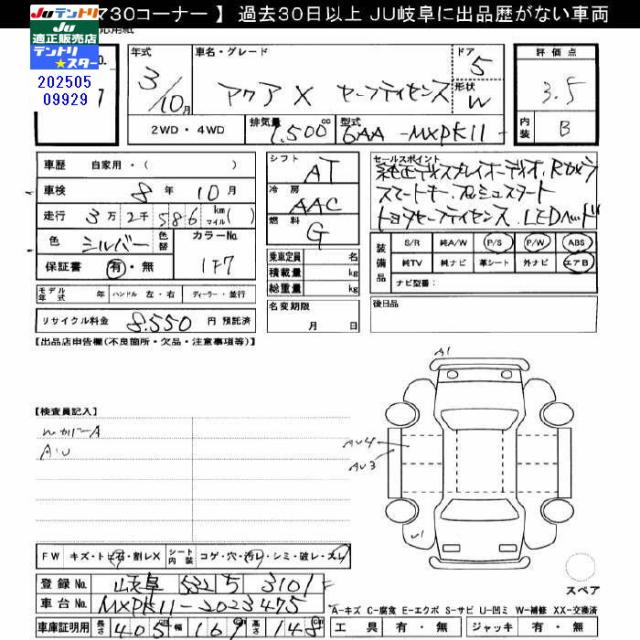 JUテントリ
JU
適正販売店
テントリ
★スター
202505
09929
マ30コーナー 】 過去30日以上 JU岐阜に出品歴がない車両
年式
3/10月
車名・グレード
アクア X セーフティセンス
ドア
5
形状
W
評価点
3.5
内装
B
2WD・4WD
排気量
1,500 cc
型式
6AA-MXPK11-
車歴 自家用・( )
車検 8年 10月
走行 3万 2千 586 km マイル ( )
色 シルバー 色替
カラーNo. 1F7
保証書 有・無
モデル年式 年 ハンドル 左・右 ディーラー・並行
リサイクル料金 8,550 円 預託済
シフト AT
冷房 AAC
燃料 G
乗車定員 名
積載量 kg
総重量 kg
名変期限
月 日
セールスポイント
純正ディスプレイオーディオ、Rカメラ
スマートキー プッシュスタート
トヨタセーフティセンス、LEDヘッド
装備品
S/R 純A/W P/S P/W ABS
純TV 純ナビ 革シート 外ナビ エアB
ナビ型番:
後日品
【出品店申告欄(不良箇所・欠品・注意事項等)】
【検査員記入】
A・U
A1
AU4
AU3
U1
スペア
FW キズ・トビ石・割レX シート内装 コゲ・穴・汚レ・シミ・破レ・スレ
登録No. 岐阜 532 ち 3101
車台No. MXPK11-2023475
車庫証明用 長さ 405 幅 169 高さ 148
A-キズ C-腐食 E-エクボ S-サビ U-凹ミ W-補修 XX-交換済
工具 有・無 ジャッキ 有・無